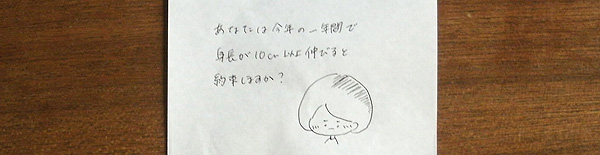 あなたは今年の一年間で
身長が10cm以上伸びると
約束しますか?